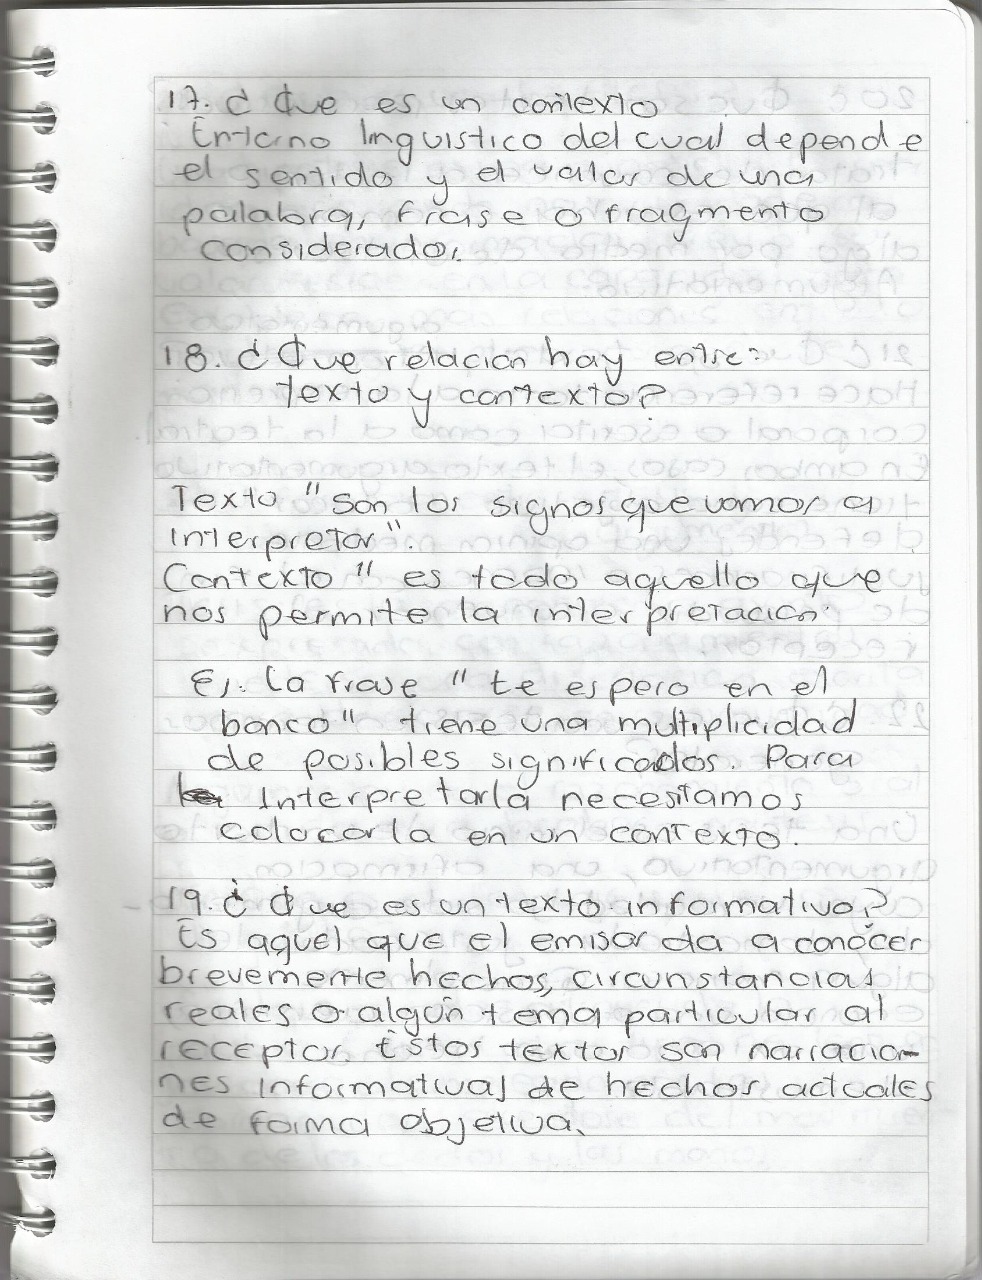 17. ¿ Que es un contexto
Entorno linguistico del cual depende
el sentido y el valor de una
palabra, frase o fragmento
considerado.
18. ¿ Que relacion hay entre:
texto y contexto?
Texto " son los signos que vamos a
interpretar".
Contexto " es todo aquello que
nos permite la interpretacion.
Ej. La frase " te espero en el
banco" tiene una multiplicidad
de posibles significados. Para
interpretarla necesitamos
colocarla en un contexto.
19. ¿ Que es un texto informativo?
Es aquel que el emisor da a conocer
brevemente hechos, circunstancias
reales o algún tema particular al
receptor. Estos textos son narracio-
nes informativas de hechos actuales
de forma objetiva.